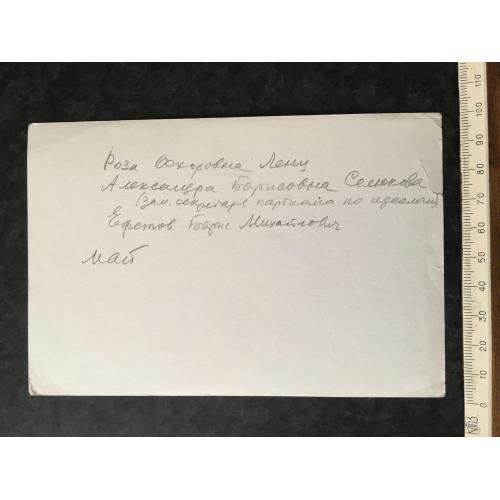 Роза Оскаровна Ленц
Александра Борисовна Селюкова
(зам. секретаря парткома по идеологии)
Ефетов Борис Михайлович
май
0 10 20 30 40 50 60 70 80 90 100 110